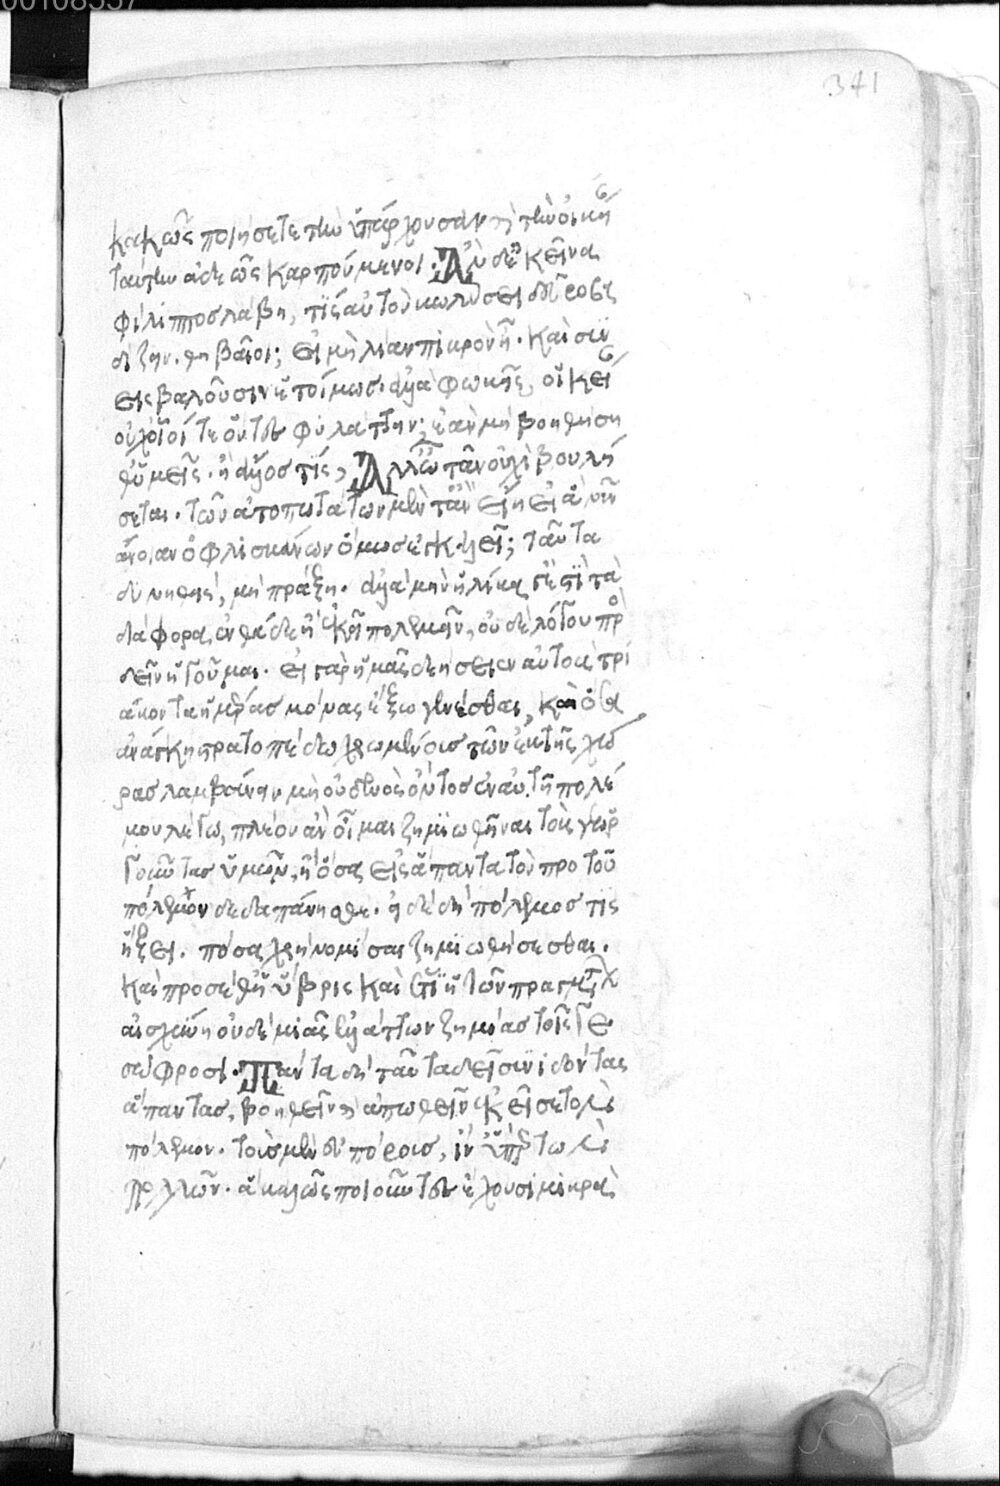 κακῶς ποιήσετε τὴν ὑπάρχουσαν καὶ τὴν οἰκεί
ταύτην ἀδεῶς καρπούμενοι· Ἂν δ' ἐκεῖνα
φίλιππος λάβη, τίς αὐτὸν κωλύσει δεῦρο βα
δίζειν· θηβαῖοι; εἰ μὴ λίαν πικρὸν ἦ· καὶ συν
εισβαλοῦσιν ἑτοίμως· ἀλλὰ φωκεῖς, οἱ κεί
οὐχ οἷοί τε ὄντες φυλάττειν; ἐὰν μὴ βοηθήση
θ' ὑμεῖς· ἢ ἄλλος τίς, Ἀλλ' ὦ τᾶν οὐχὶ βουλή
σεται· τῶν ἀτοπωτάτων μὲν τἂν εἴη εἰ ἃ νῦν
ἄνοιαν ὀφλισκάνων ὅμως ἐκλαλεῖ; ταῦτα
δυνηθεὶς, μὴ πράξη· ἀλλὰ μὴν ἡλίκα γ' ἐστὶ τὰ
διάφορα, ἐνθάδε ἢ 'κεῖ πολεμεῖν, οὐδὲ λόγου προσ
δεῖν ἡγοῦμαι· εἰ γὰρ ἡμᾶς δεήσειεν αὐτοὺς τρι
άκοντα ἡμέρας μόνας ἔξω γενέσθαι, καὶ ὅσα
ἀνάγκη στρατοπέδω χρωμένοις τῶν ἐκ τῆς χώ
ρας λαμβάνειν μὴ οὐδενὸς ὄντος ἐν αὐτῆ πολε
μου λέγω, πλέον ἂν οἶμαι ζημιωθῆναι τοὺς γεωρ
γοῦντας ὑμῶν, ἢ ὅσα εἰς ἅπαντα τὸν προ τοῦ
πόλεμον δεδαπάνησθε· εἰ δὲ δὴ πόλεμος τις
ἥξει· πόσα χρὴ νομίσαι ζημιωθήσεσθαι·
καὶ προσέσθ' ἡ ὕβρις καὶ ἔτι ἡ τῶν πραγμάτων
αἰσχύνη οὐδὲ μιᾶς ἐλάττων ζημίας τοῖς γε
σώφροσι· Πάντα δὴ ταῦτα δεῖ συνιδόντας
ἅπαντας, βοηθεῖν καὶ ἀπωθεῖν ἐκεῖσε τὸν
πόλεμον· τοὺς μὲν εὐπόρους, ἵν' ὑπὲρ τῶν
πολλῶν· ἃ καλῶς ποιοῦντες ἔχουσι μικρὰ
341